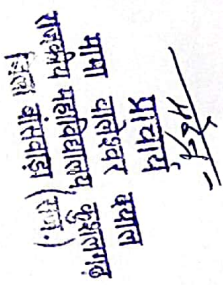 प्राचार्य
मामा बालेश्वर दयाल
राजकीय महाविद्यालय, कुशलगढ़
जिला बांसवाड़ा (राज.)